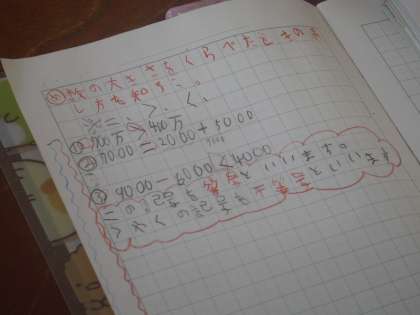 め 数の大きさをくらべたときのあ
し方を知ろう。
※ =、>、<、
① 700万 > 400万
② 7000 = 2000 + 5000
③ 9000 - 6000 < 4000
=の記号を等号といいます。
>や<の記号を不等号といいます